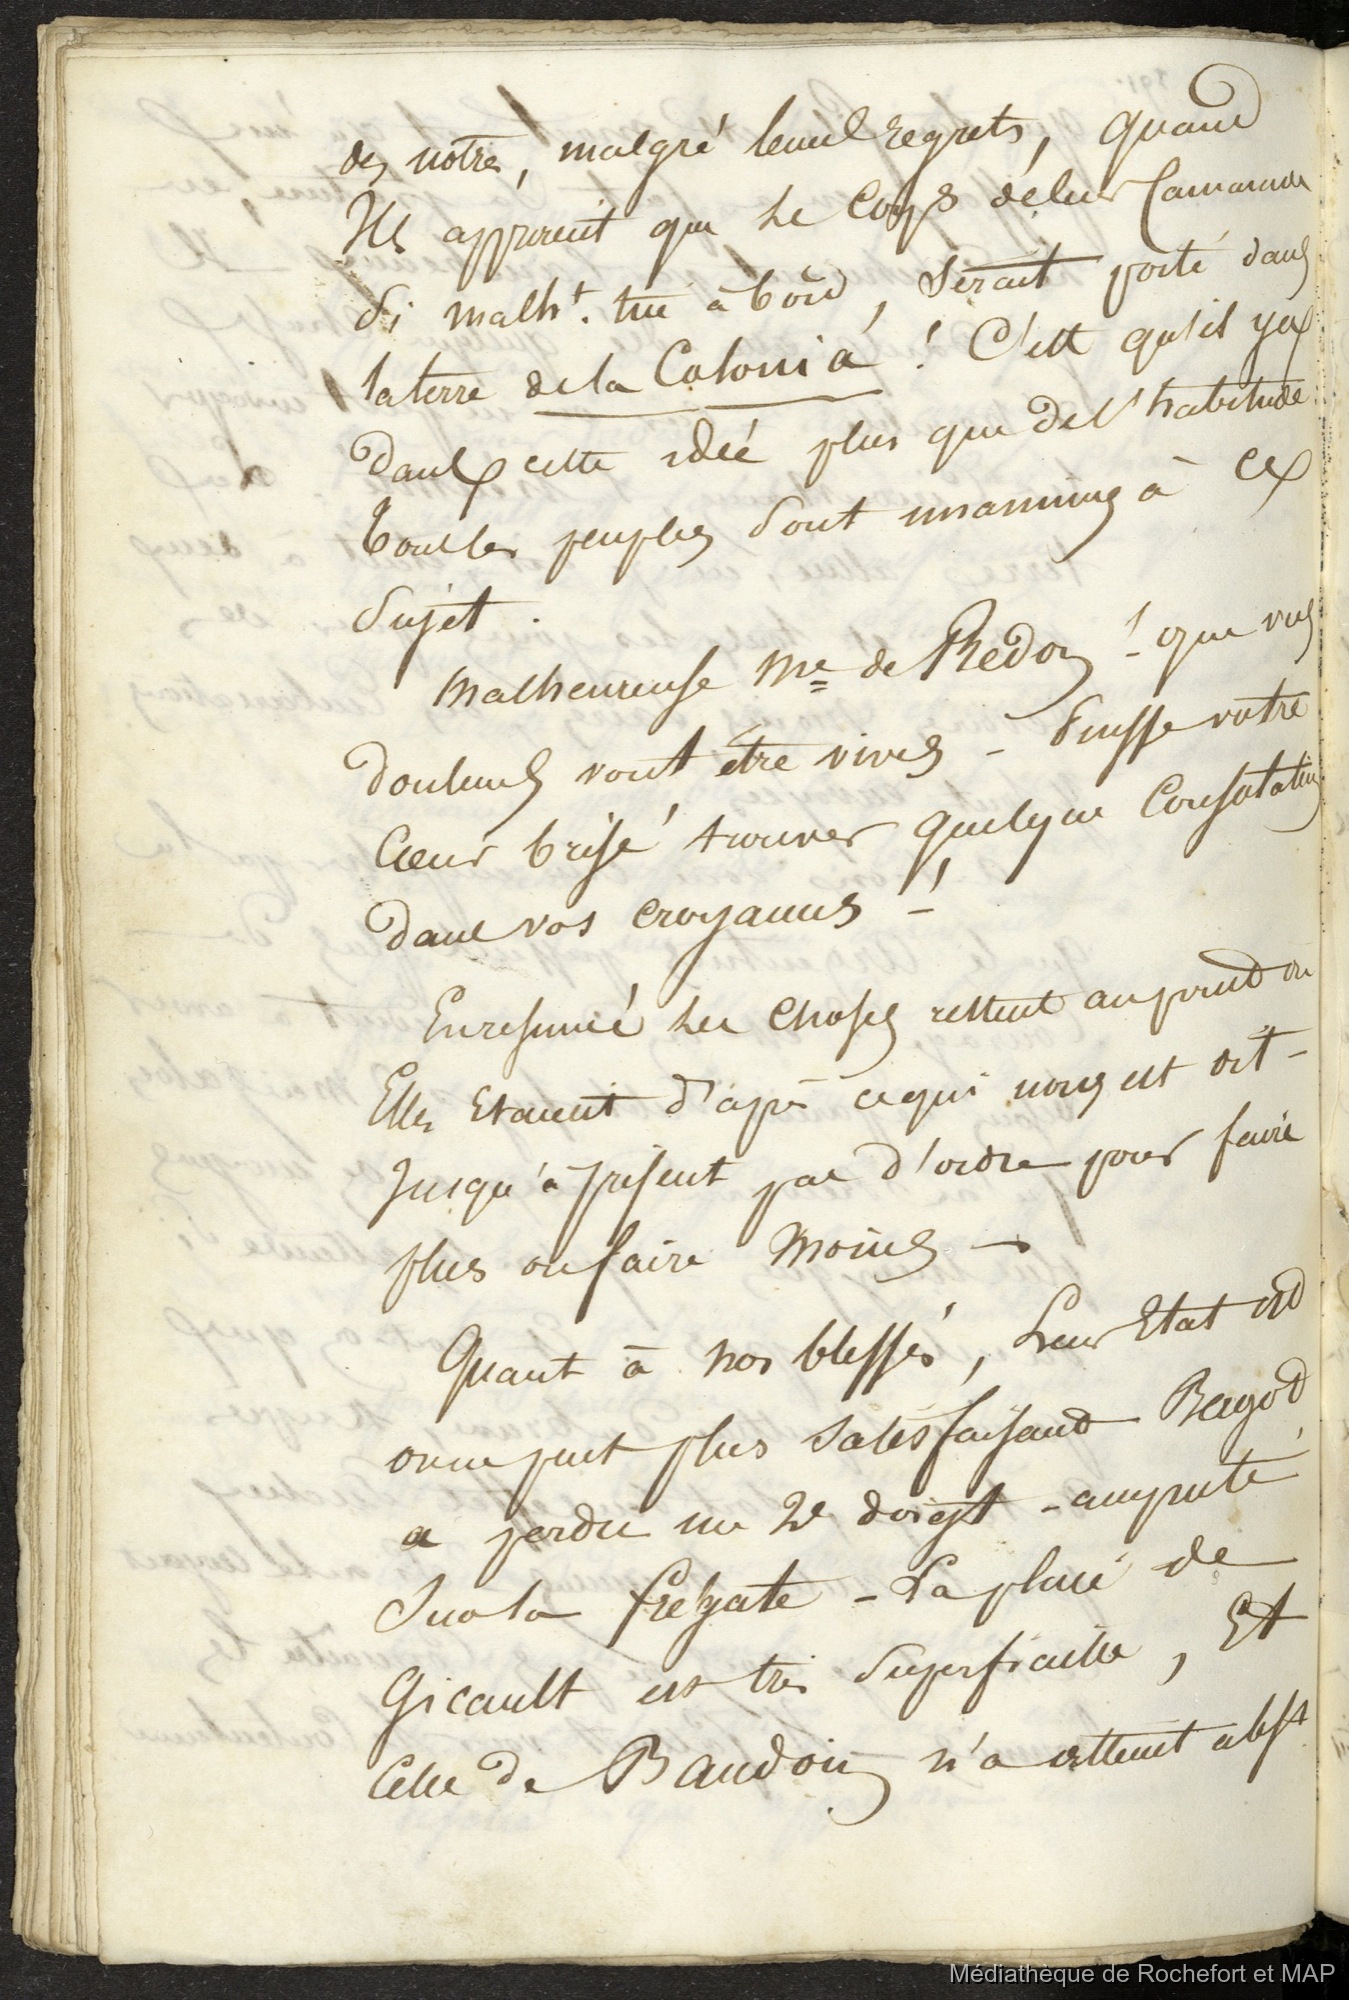 des notres, malgré leurs regrets, quand
Ils apprirent que le Corps de leur Camarade
si malh.t tué à bord, serait porté dans
la terre de la Colonia ! C'est qu'il y a
dans cette idée plus que de l'habitude
tous les peuples sont unanimes à ce
sujet.
Malheureuse Me de Redon ! que vos
douleurs vont être vives - Puisse votre
Cœur brisé trouver quelque Consolation
dans vos croyances !
En resumé les choses restent au point où
Elles Etaient d'après ce qui nous est dit -
Jusqu'à présent pas d'ordre pour faire
plus ou faire moins -
Quant à nos blessés, Leur Etat est
on ne peut plus satisfaisant Bagot
a perdu un 2e doigt - amputé
Sur la frégate - La plaie de
Gicault est très superficielle, Et
Celle de Baudoin n'a atteint abst
Médiathèque de Rochefort et MAP